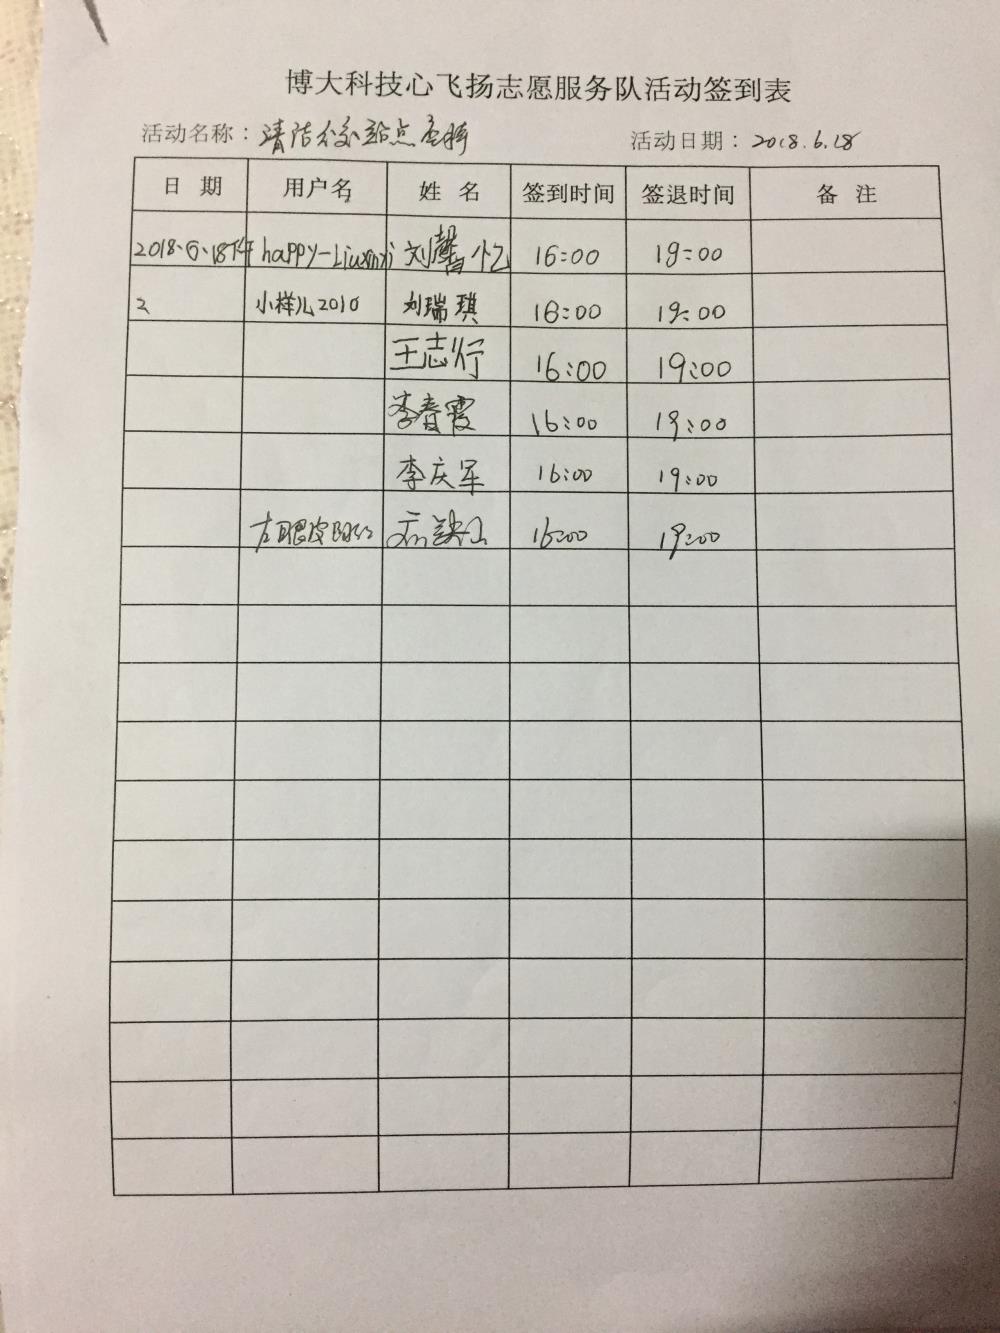 博大科技心飞扬志愿服务队活动签到表
活动名称：清洁公交站点 活动日期：2018.6.18
日 期 用户名 姓 名 签到时间 签退时间 备 注
2018.6.18下午 happy-Liuxinyi 刘馨忆 16:00 19:00
2 小样儿2010 刘瑞琪 16:00 19:00
王志行 16:00 19:00
李春霞 16:00 19:00
李庆军 16:00 19:00
左眼皮 16:00 19:00